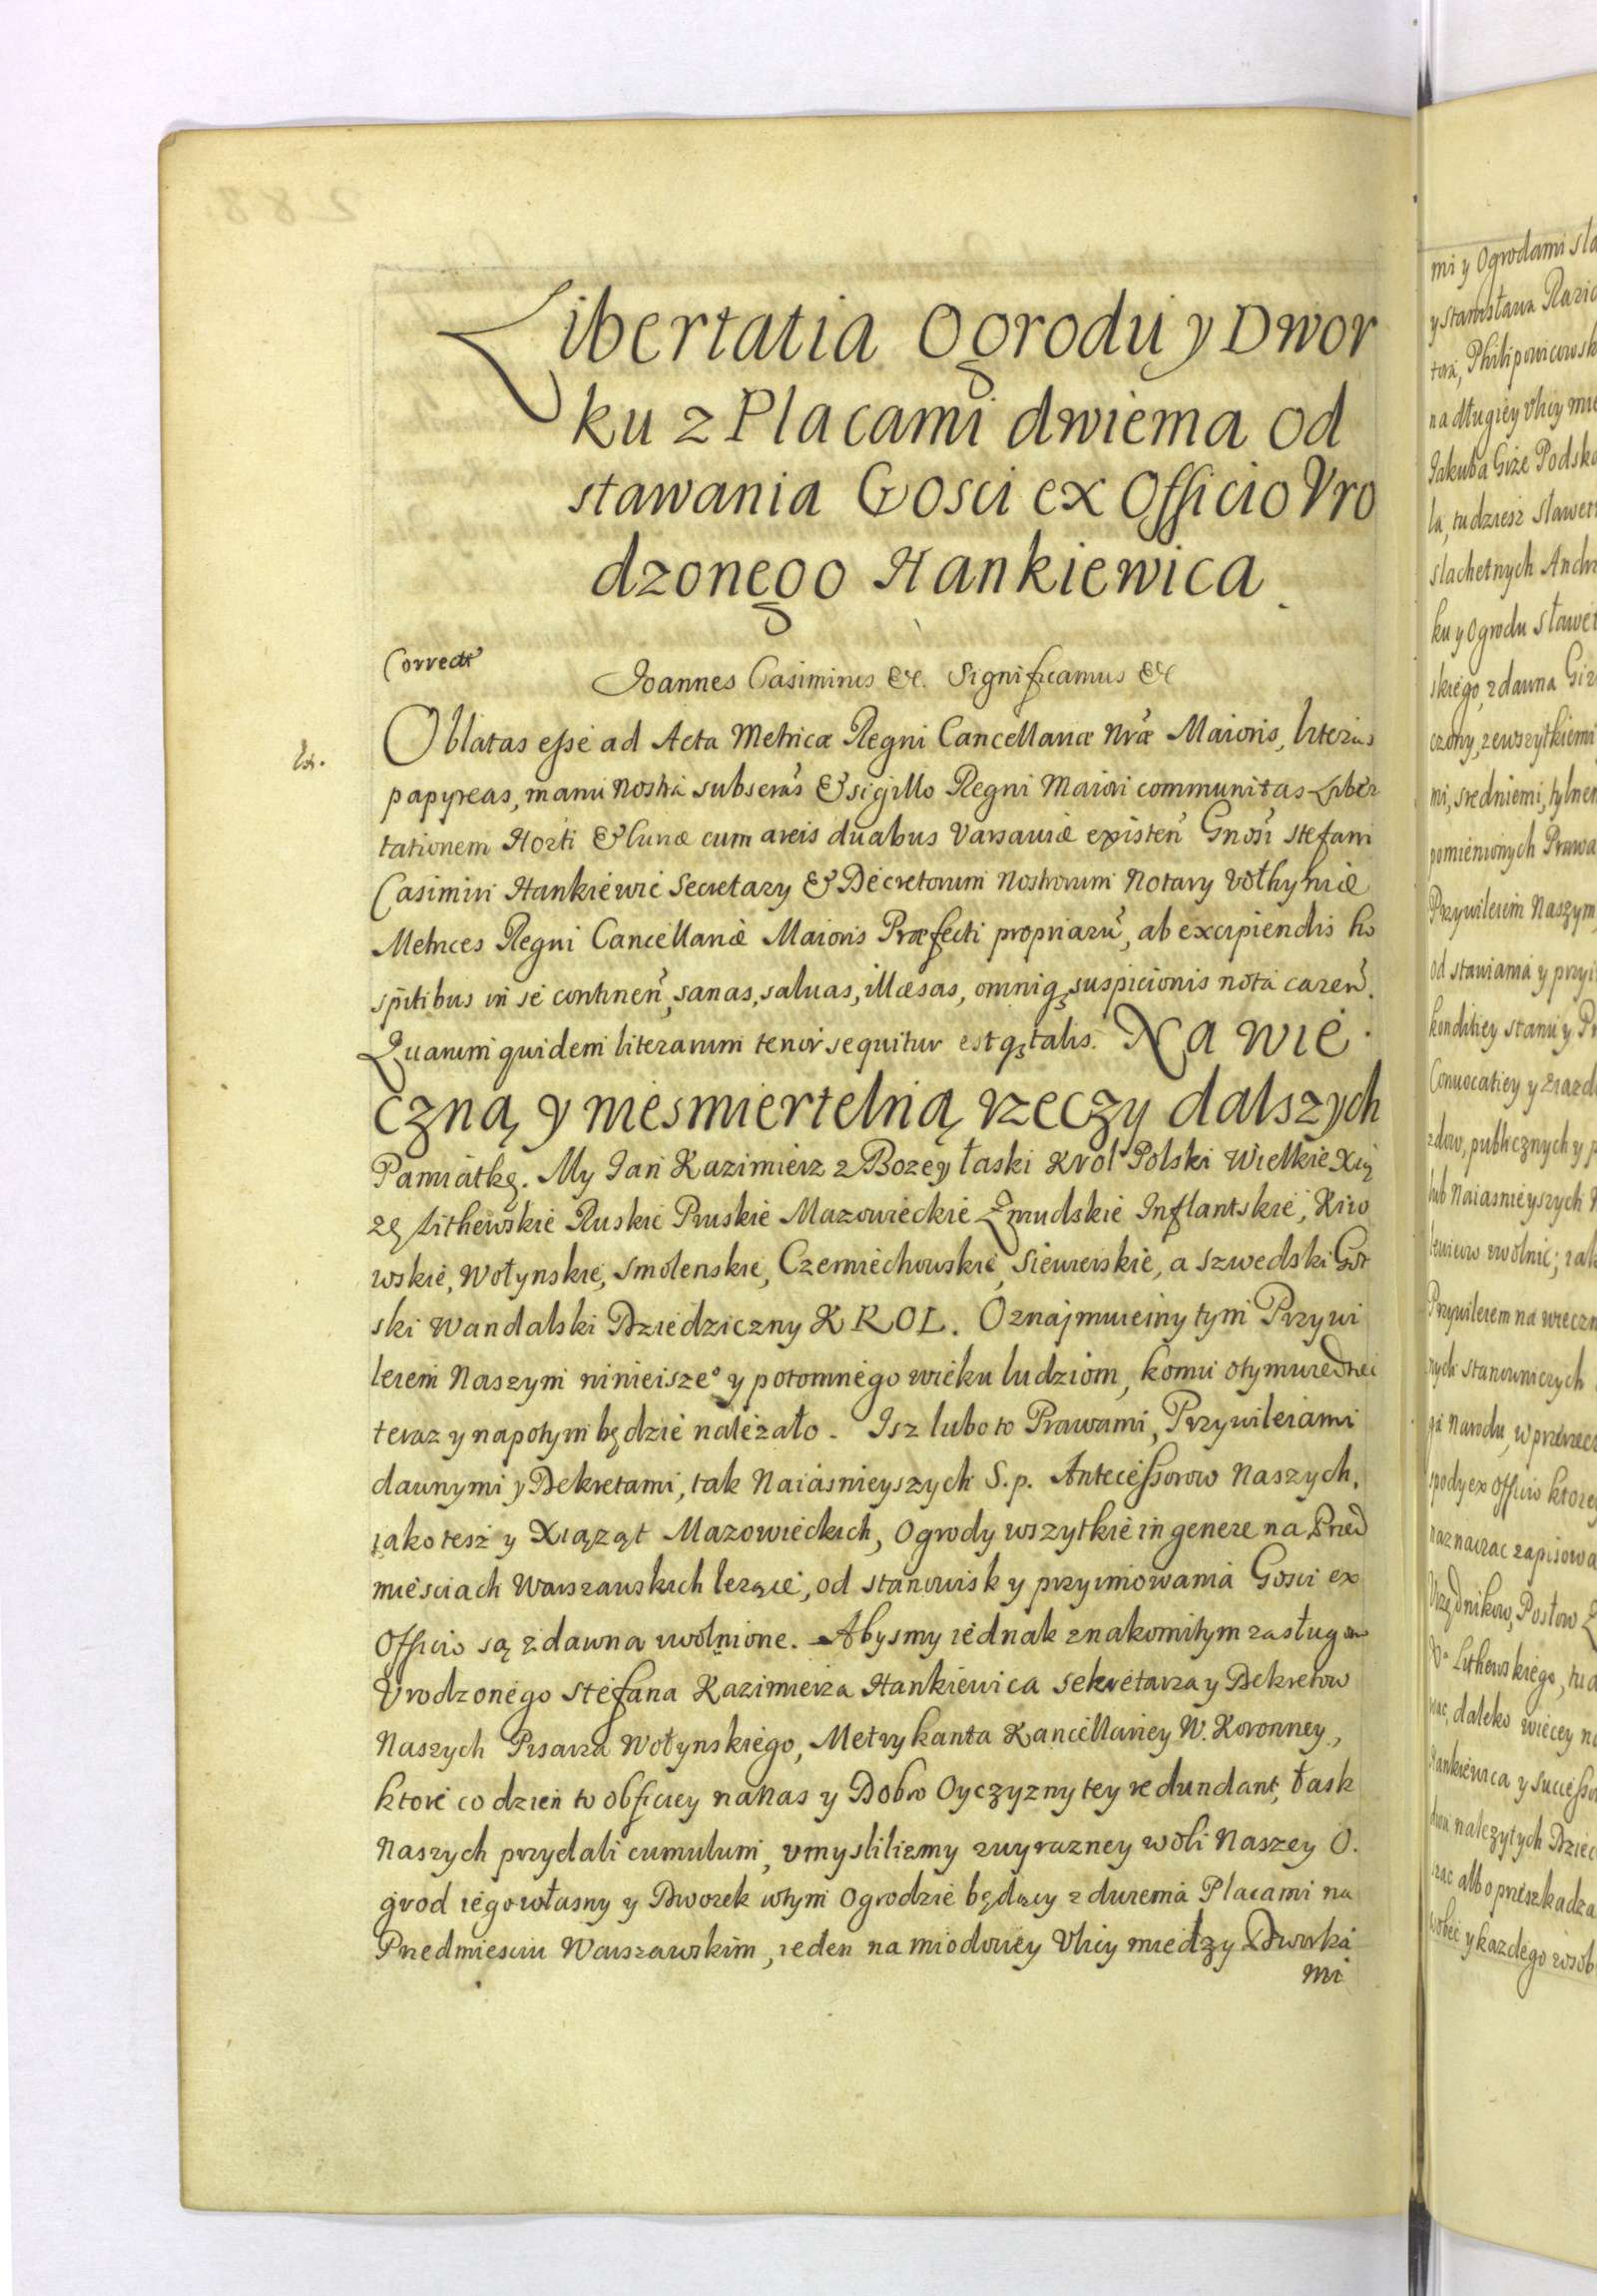 Libertatia Ogrodu y Dwor
ku z Placami dwiema od
stawania Gosci ex Officio Vro
dzonego Hankiewica.
Correctũ
Joannes Casimirus &c. Significamus &c
Oblatas esse ad Acta Metricæ Regni Cancellariæ Nræ Maioris, literas
papyreas, manu nostra subscrãs & sigillo Regni Maiori communitas Liber
tationem Horti & Curiæ cum areis duabus Varsaviæ existeñ Gnosi Stefani
Casimiri Hankiewic Secretary & Decretorum Nostrorum Notary Volhyniæ
Metrices Regni Cancellariæ Maioris Præfecti propriarũ, ab excipiendis ho
spitibus in se contineñ, sanas, salvas, illæsas, omniq3 suspicionis nota careñ.
Quarum quidem literarum tenor sequitur estq3 talis. Na wie
czną y niesmiertelną rzeczy dalszych
Pamiątkę. My Jan Kazimierz z Bozey łaski Krol Polski Wielkie Xią
zę Lithewskie Ruskie Pruskie Mazowieckie Zmudskie Inflantskie, Kiio
wskie, Wołynskie, Smolenskie, Czerniechowskie, Siewierskie, a Szwedski Got
ski Wandalski Dziedziczny KROL. Oznajmuiemy tym Przywi
leiem Naszym ninieisze⁰ y potomnego wieku ludziom, komu o tym wiedziec
teraz y napotym będzie należało. Isz lubo to Prawami, Przywileiami
dawnymi y Dekretami, tak Naiasnieyszych S.p. Antecessorow Naszych,
iako tesz y Xiąząt Mazowieckich, Ogrody wszytkie in genere na Przed
miesciach Warszawskich lezące, od stanowisk y przyimowania Gosci ex
Officio są zdawna uwolnione. Abysmy iednak znakomitym zasługom
Vrodzonego Stefana Kazimierza Hankiewica Sekretarza y Dekretow
Naszych Pisarza Wołynskiego, Metrykanta Kancellariey W. Koronney,
ktore co dzien to obficiey na Nas y Dobro Oyczyzny tey redundant, łask
Naszych przydali cumulum, umyslilismy zwyrazney woli Naszey O.
grod iego własny y Dworek wtym Ogrodzie będący z dwiema Placami na
Przedmiesciu Warszawskim, ieden na miodowey Vlicy miedzy Dworka
mi
mi y Ogrodami sła
y Stanisława
na długiey Vlicy mie
Jakuba Gize Podska
la, tudziesz sławet
slachetnych Andr
ku y Ogrodu sławet
skiego, zdawna Giz
czony, zewszytkiemi
mi, sredniemi, tylnem
pomienionych Prawa
Przywileiem Naszym
od stawiania y przyi
kondiciey stanu y Pr
Convocatiey y Ziazd
zdow, publicznych y p
lub Naiasnieyszych N
Przywileiem na wieczn
nych stanowniczych
go Narodu, w przerzec
spody ex Officio ktorey
naznaczac zapisowa
Vrzędnikow, Posłow
Xa Lithewskiego, tud
daleko wiecey na
Hankiewica y Success
należytych Dziec
albo przeszkadza
wobec y kazdego zosob